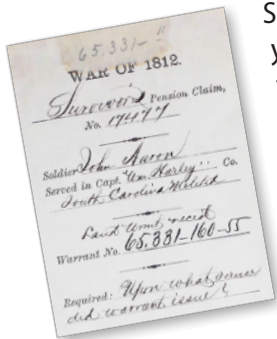 65.331-
WAR OF 1812.
Survivor's Pension Claim,
No. 17477
Soldier John Aaron
Served in Capt. Wm Harley's Co.
South Carolina Militia
Land
Warrant No. 65.331-160-55
Required: Upon what service
did warrant issue?
S
y